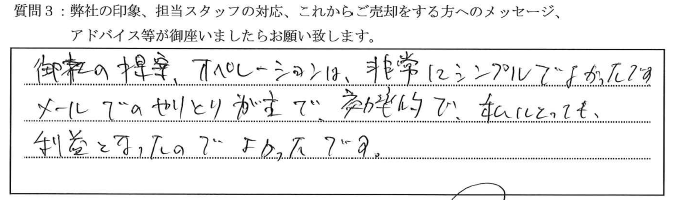 質問3：弊社の印象、担当スタッフの対応、これからご売却をする方へのメッセージ、
アドバイス等が御座いましたらお願い致します。
御社の提案、オペレーションは、非常にシンプルでよかったです
メールでのやりとりが主で、効率的で、私にとっても、
利益となったのでよかったです。